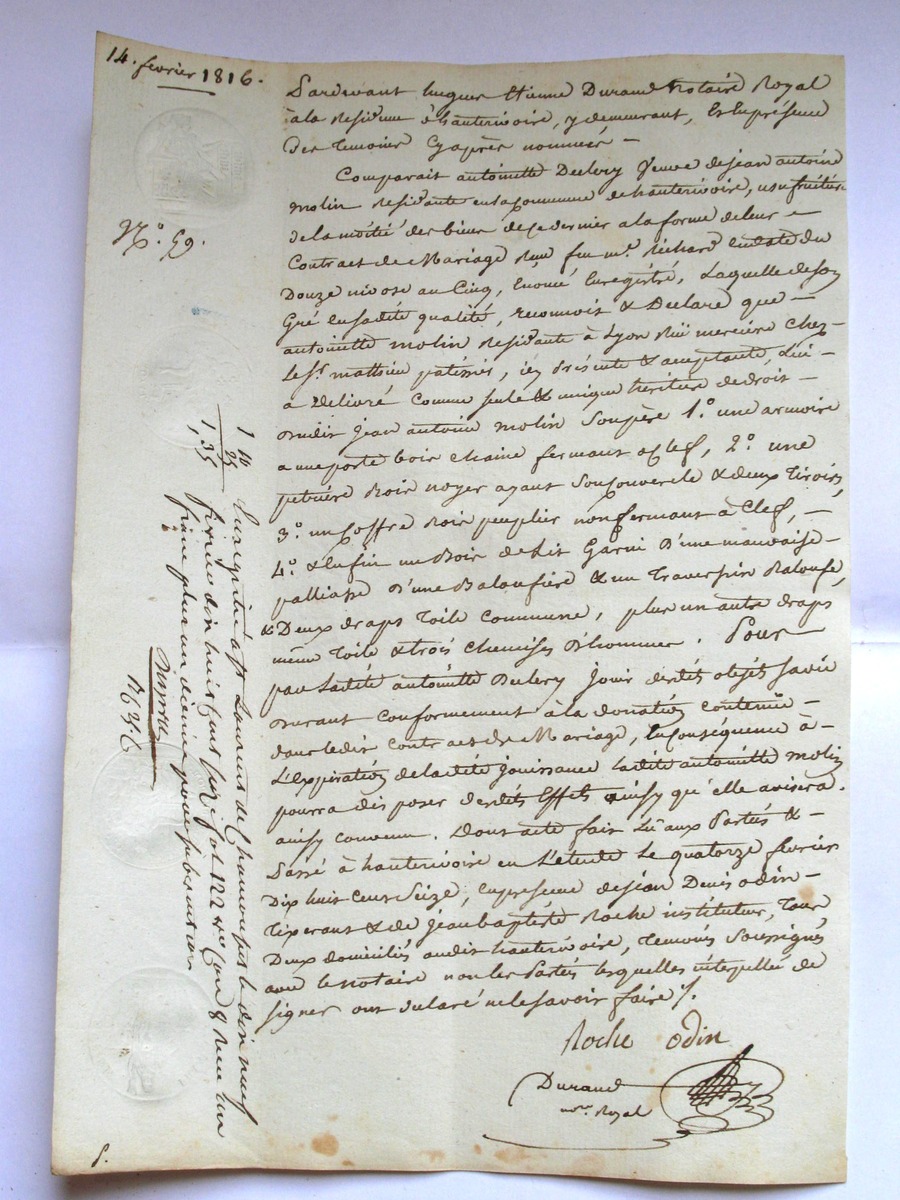 14. fevrier 1816.
N.° 59.
Pardevant hugues Etienne Durand Notaire Royal
à la Residence d'hauterivoire, y demeurant, Et En présence
Des temoins Cy après nommés –
Comparait antoinette Dulery Veuve de jean antoine
molin Residante en la Commune de hauterivoire, usufruitiere
de la moitié des biens de ce dernier a la forme de leur –
Contract de Mariage Reçu feu me. Richard En date du
Douze nivose an Cinq, Enregistré, Laquelle de son
Gré En sadite qualité, reconnoit & Declare que –
antoinette molin Residante à Lyon Rüe merciere Chez –
le sr. mathieu patissier, icy présente & acceptante, Lui –
a Delivré Comme seule & unique heritiere de droit –
dudit jean antoine molin Son père 1.° une armoire
a une porte bois chaine fermant a Clef, 2.° une
petriere Bois noyer ayant Son Couvercle & deux tiroirs,
3.° un Coffre Bois peuplier non fermant à Clef, –
4.° & Enfin un Bois de Lit Garni D'une mauvaise –
palliasse D'une Balouffiere & un traversin Balouffe,
& Deux draps toile Commune, plus un autre draps
même toile & trois chemises D'hommes. Pour
par Ladite antoinette Dulery jouir desdits objets sa vie
Durant Conformement à la donation Contenüe –
dans ledit Contract de Mariage, En Conséquence à –
L'Expiration de ladite jouissance Ladite antoinette molin
pourra disposer desdits Effets ainsy qu'elle avisera.
ainsy Convenu. Dont acte fait Lû aux Parties & –
Passé à hauterivoire en L'etude Le quatorze fevrier
Dix huit Cent Seize, En presence de jean Denis odin –
tixerant & de jean baptiste Roche instituteur, tous
Deux domiciliés audit hauterivoire, temoins Soussignés
avec le notaire non les Parties lesquelles interpellées de
signer ont declaré ne le savoir faire ./.
Roche odin
Durand
nore. Royal
1 10
25
1,35
Enregistré à St Laurent de Chamousset le dix neuf
fevrier dix huit Cent seize fol 122 Vo Case 8 Reçu un
franc plus un decime pour subvention